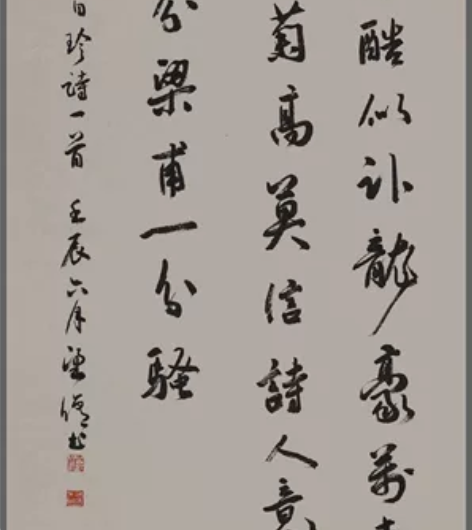 酷似卧龍豪萬
菊高莫信詩人竟
分梁甫一分騷
自珍詩一首 壬辰六月